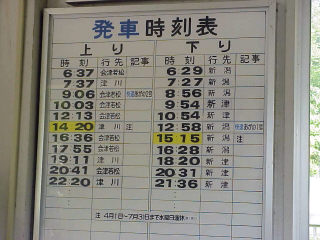 発車時刻表
上り 下り
時刻 行先 記事 時刻 行先 記事
6 37 会津若松 6 29 新潟
7 37 津川 7 27 新潟
9 06 会津若松 快速あがの2号 8 56 新潟
10 03 会津若松 9 54 新津
12 13 会津若松 10 54 新津
14 20 津川 注 12 58 新潟 快速あがの1号
16 36 会津若松 15 15 新潟 注
17 55 会津若松 16 28 新潟
19 11 津川 18 20 新津
20 41 会津若松 20 31 新津
22 20 津川 21 36 新津
注 4月1日~7月31日まで水曜日運休